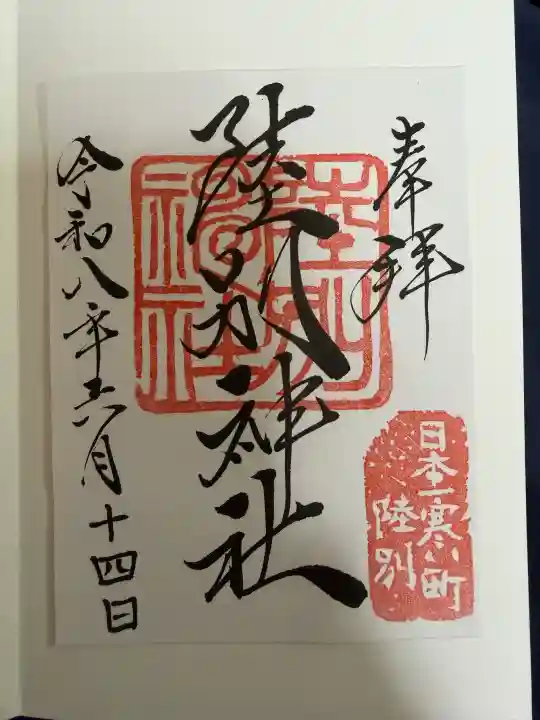 奉拝
陸別神社
陸別
神社
日本一寒い町
陸別
令和八年六月十四日